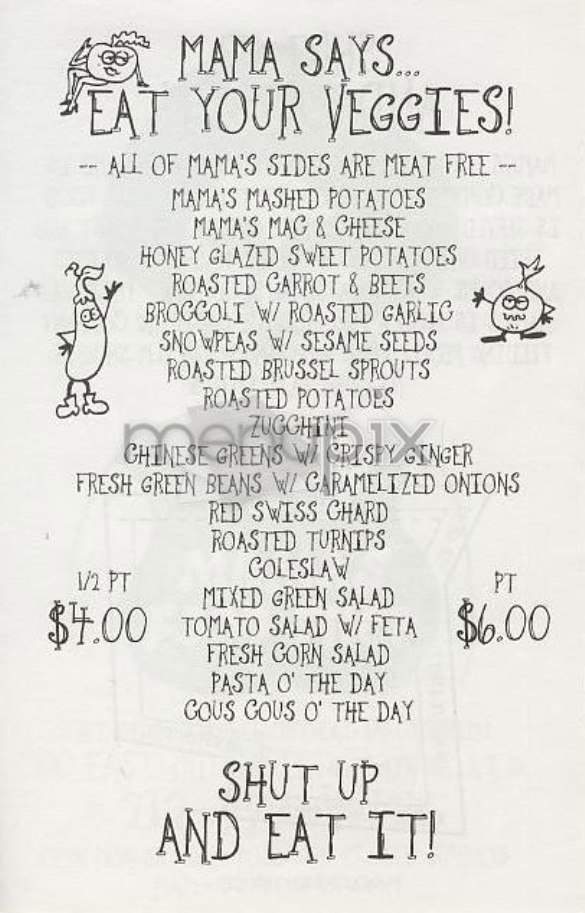 MAMA SAYS...
EAT YOUR VEGGIES!
-- ALL OF MAMA'S SIDES ARE MEAT FREE --
MAMA'S MASHED POTATOES
MAMA'S MAC & CHEESE
HONEY GLAZED SWEET POTATOES
ROASTED CARROT & BEETS
BROCCOLI W/ ROASTED GARLIC
SNOWPEAS W/ SESAME SEEDS
ROASTED BRUSSEL SPROUTS
ROASTED POTATOES
ZUCCHINI
menupix
CHINESE GREENS W/ CRISPY GINGER
FRESH GREEN BEANS W/ CARAMELIZED ONIONS
RED SWISS CHARD
ROASTED TURNIPS
COLESLAW
MIXED GREEN SALAD
TOMATO SALAD W/ FETA
FRESH CORN SALAD
PASTA O' THE DAY
COUS COUS O' THE DAY
1/2 PT
$4.00
PT
$6.00
SHUT UP
AND EAT IT!